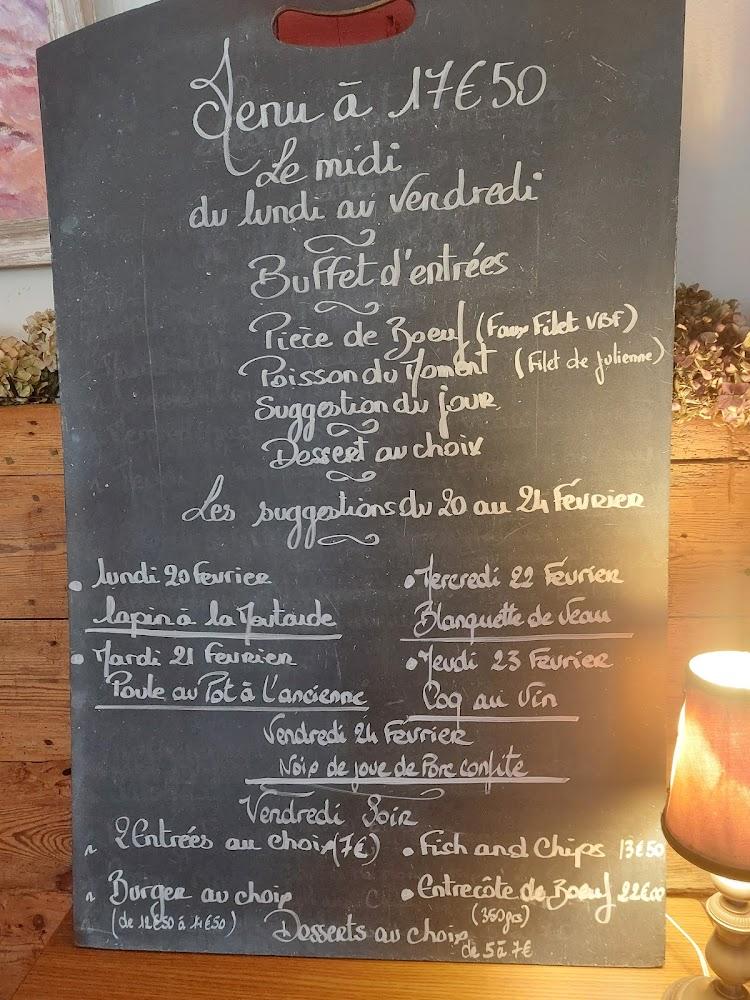 Menu à 17€50
Le midi
du lundi au Vendredi
Buffet d'entrées
Pièce de Boeuf (Faux Filet VBF)
Poisson du Moment (Filet de Julienne)
Suggestion du jour
Dessert au choix
Les suggestions du 20 au 24 Février
• Lundi 20 Février
Lapin à la Moutarde
• Mardi 21 Février
Poule au Pot à L'ancienne
• Mercredi 22 Février
Blanquette de Veau
• Jeudi 23 Février
Coq au Vin
Vendredi 24 Février
Noix de joue de Porc confite
Vendredi Soir
2 Entrées au choix (7€)
• Fich and Chips 13€50
Burger au choix
(de 12€50 à 14€50)
• Entrecôte de Boeuf 22€00
(350grs)
Desserts au choix
de 5 à 7€